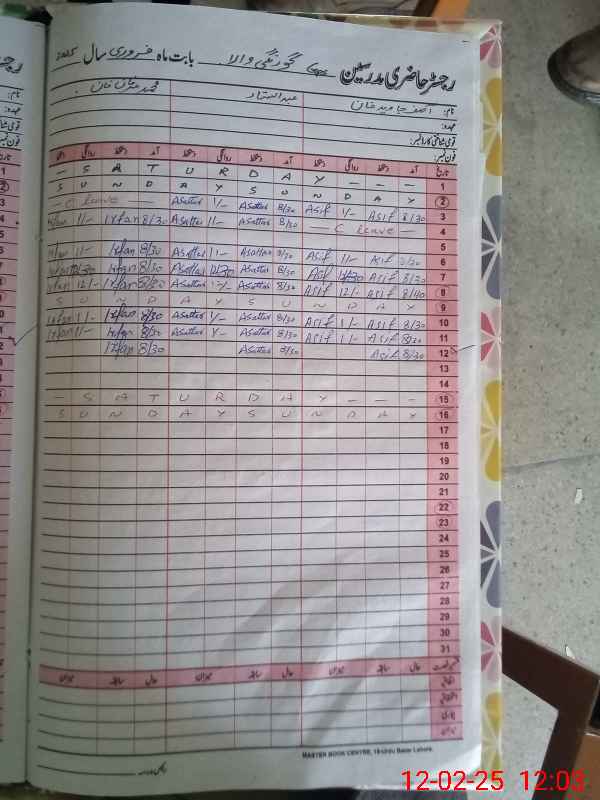 رجسٹر حاضری مدرسین گورنگی والا بابت ماہ فروری سال
نام: آصف جاوید خان عبدالستار محمد عرفان خان
عہدہ:
قومی شناختی کارڈ نمبر:
فون نمبر:
تاریخ آمد دستخط روانگی دستخط آمد دستخط روانگی دستخط آمد دستخط روانگی
— S A T U R D A Y — — — 1
S U N D A Y S U N D A Y 2
— C leave — Asattar 1/- Asattar 8/30 Asif 1/- Asif 8/30 3
Irfan 1/- Irfan 8/30 Asattar 1/- Asattar 8/30 — C leave — 4
5
Irfan 1/- Irfan 8/30 Asattar 1/- Asattar 8/30 Asif 1/- Asif 8/30 6
Irfan 12/30 Irfan 8/30 Asattar 12/30 Asattar 8/30 Asif 12/30 Asif 8/30 7
Irfan 12/- Irfan 8/30 Asattar 12/- Asattar 8/30 Asif 12/- Asif 8/40 8
S U N D A Y S U N D A Y 9
Irfan 1/- Irfan 8/30 Asattar 1/- Asattar 8/30 Asif 1/- Asif 8/30 10
Irfan 1/- Irfan 8/30 Asattar 1/- Asattar 8/30 Asif 1/- Asif 8/30 11
Irfan 8/30 Asattar 8/30 Asif 8/30 12
13
14
— S A T U R D A Y — — — 15
S U N D A Y S U N D A Y 16
17
18
19
20
21
22
23
24
25
26
27
28
29
30
31
حال سابقہ میزان حال سابقہ میزان حال سابقہ میزان
MASTER BOOK CENTRE, 19-Urdu Bazar Lahore.
12-02-25 12:03